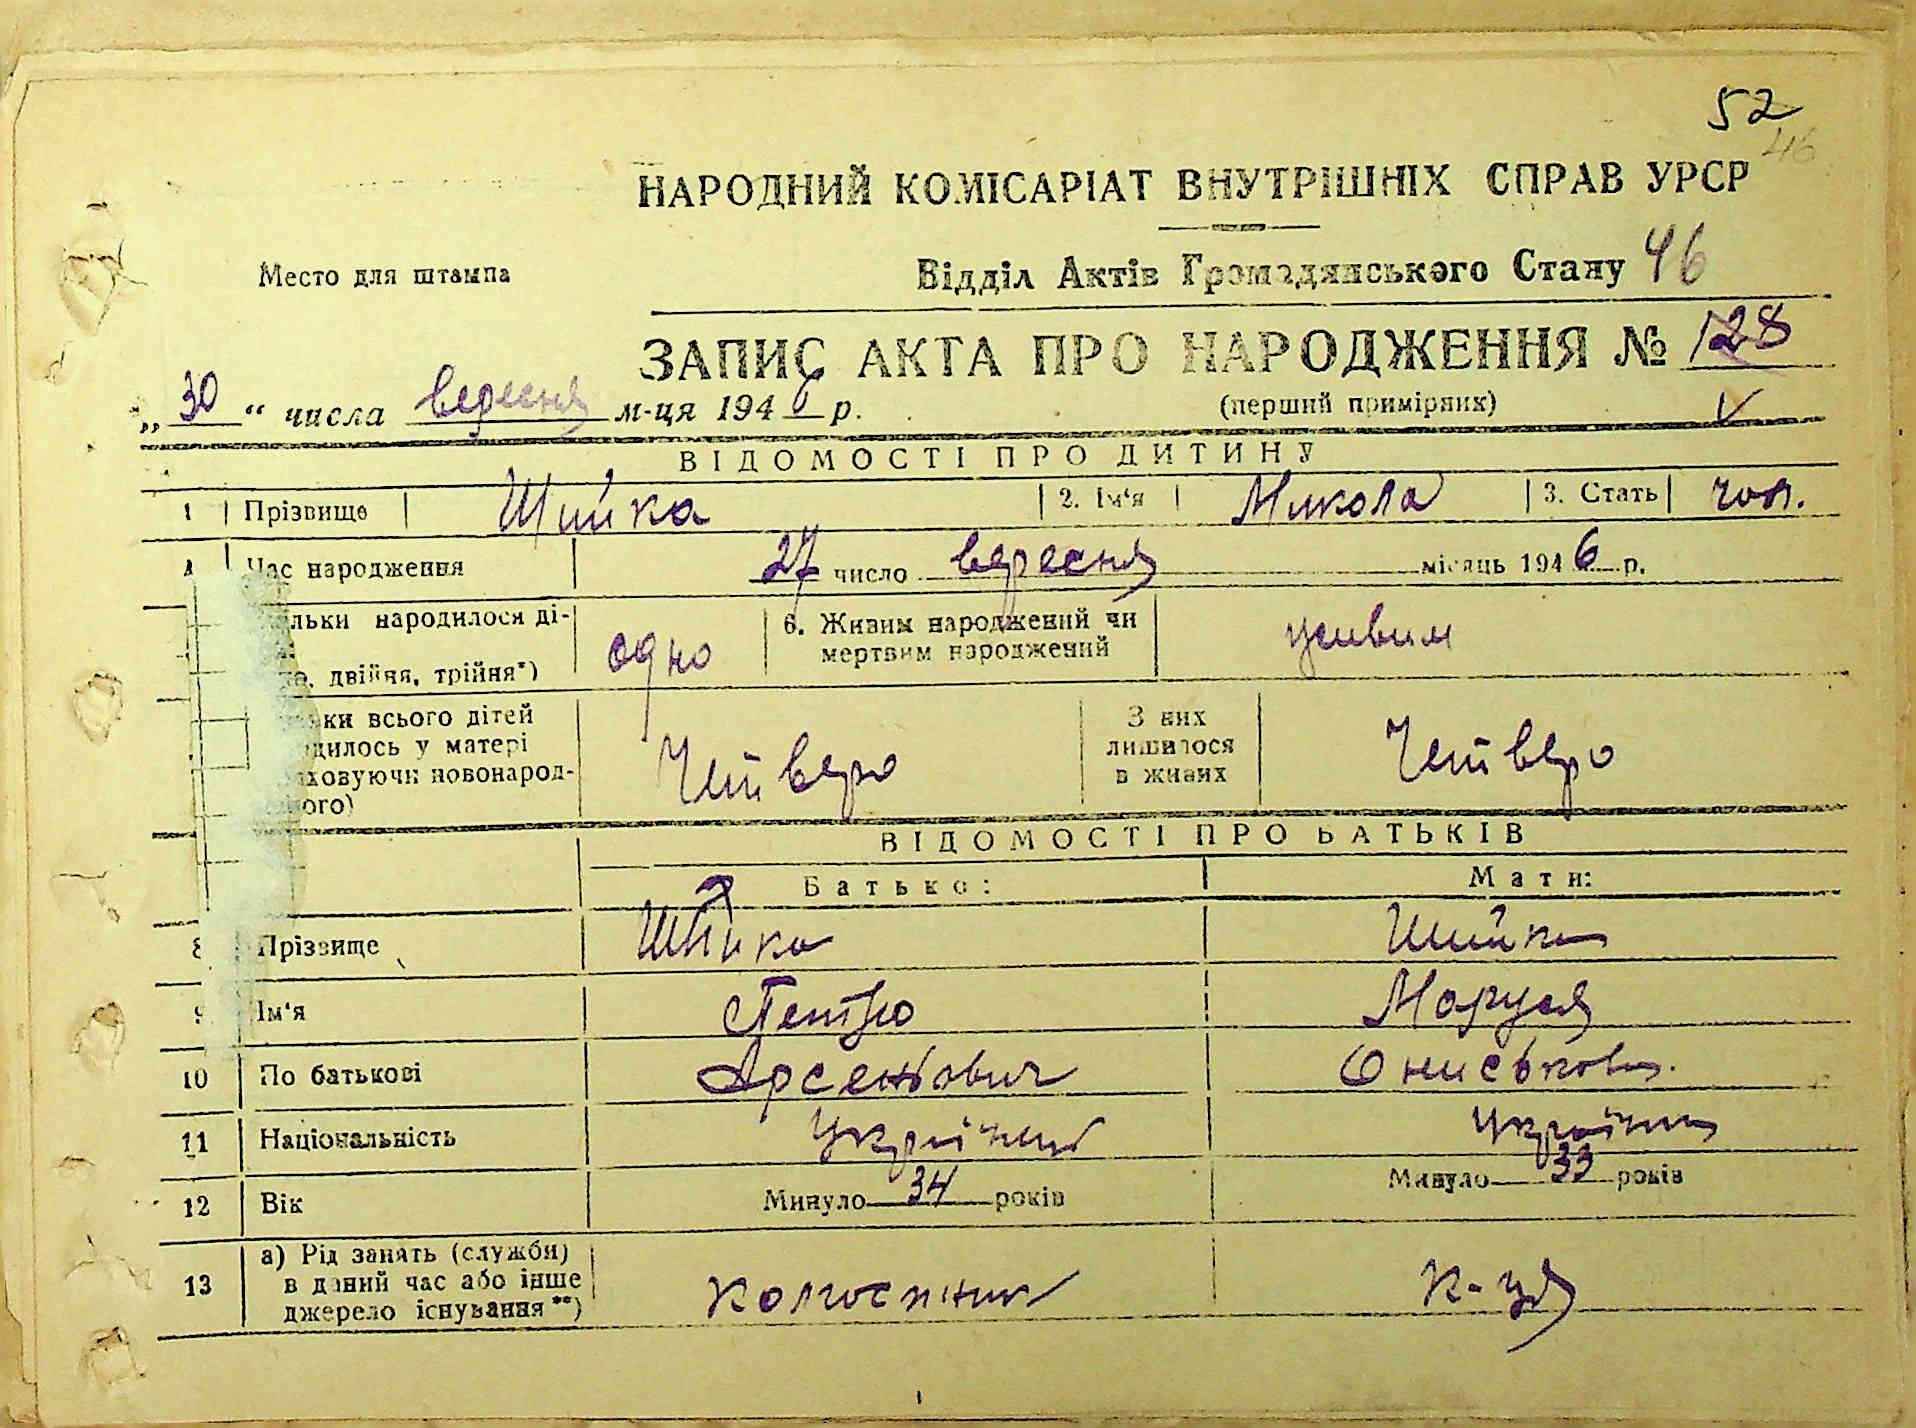 52
46
НАРОДНИЙ КОМІСАРІАТ ВНУТРІШНІХ СПРАВ УРСР
Место для штампа
Відділ Актів Громадянського Стану 46
ЗАПИС АКТА ПРО НАРОДЖЕННЯ № 128
„30“ числа вересня м-ця 1946 р.
(перший примірник) V
ВІДОМОСТІ ПРО ДИТИНУ
1 Прізвище Шийка 2. Ім'я Микола 3. Стать чол.
Час народження 27 число вересня місяць 1946 р.
льки народилося ді-
двійня, трійня*) одно 6. Живим народжений чи
мертвим народжений живим
ки всього дітей
дилось у матері
ховуючи новонарод-
ого) Четверо З них
лишилося
в живих Четверо
ВІДОМОСТІ ПРО БАТЬКІВ
Батько: Мати:
8 Прізвище Шийка Шийка
9 Ім'я Петро Маруся
10 По батькові Арсеньович Ониськов.
11 Національність
12 Вік Минуло 34 років Минуло 33 років
13 а) Рід занять (служби)
в даний час або інше
джерело існування**) колгоспник к-ця